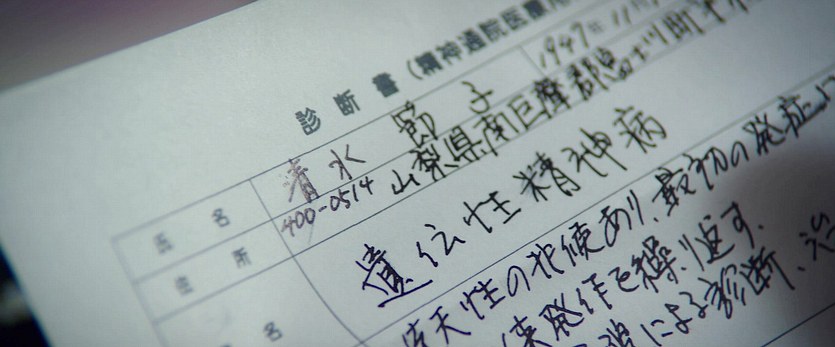 診断書（精神通院医療用
氏名 清水 節子 1947年11月
住所 400-0514 山梨県南巨摩郡富士川町平
名 遺伝性精神病
先天性の兆候あり、最初の発症に
来発作を繰り返す。
による診断、治